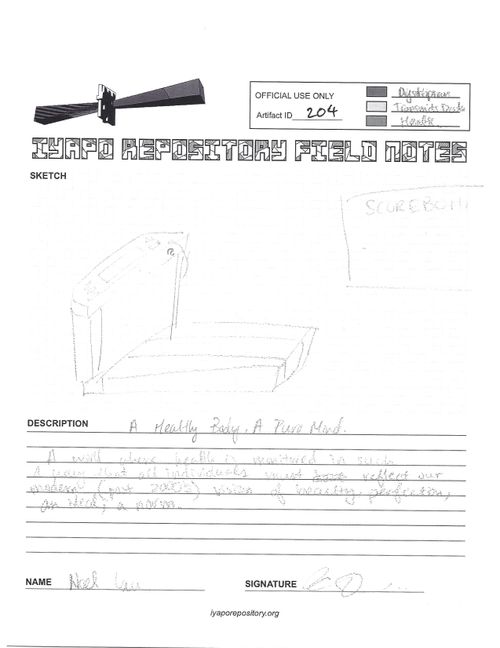 OFFICIAL USE ONLY
Artifact ID 204
Dystopian
Health
IYAPO REPOSITORY FIELD NOTES
SKETCH
DESCRIPTION
A Healthy Body, A Pure Mind.
A world where health is monitored in such
A way that all individuals must reflect our
modern vision of perfection,
an ideal, a norm.
NAME Noel
SIGNATURE
iyaporepository.org